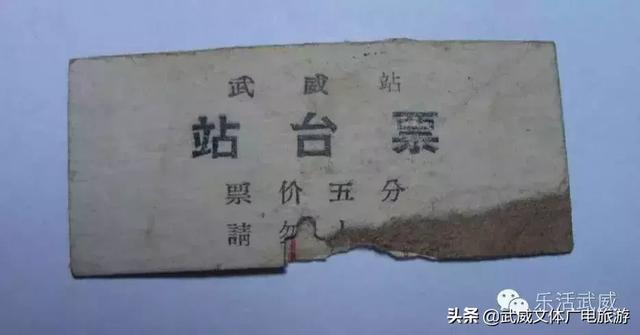 武威站
站台票
票价五分
請勿上
乐活武威
头条 @武威文体广电旅游